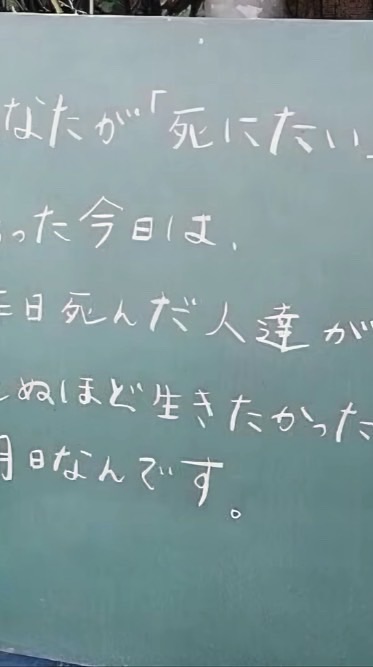 なたが「死にたい」
った今日は、
日死んだ人達が
ぬほど生きたかった
日なんです。